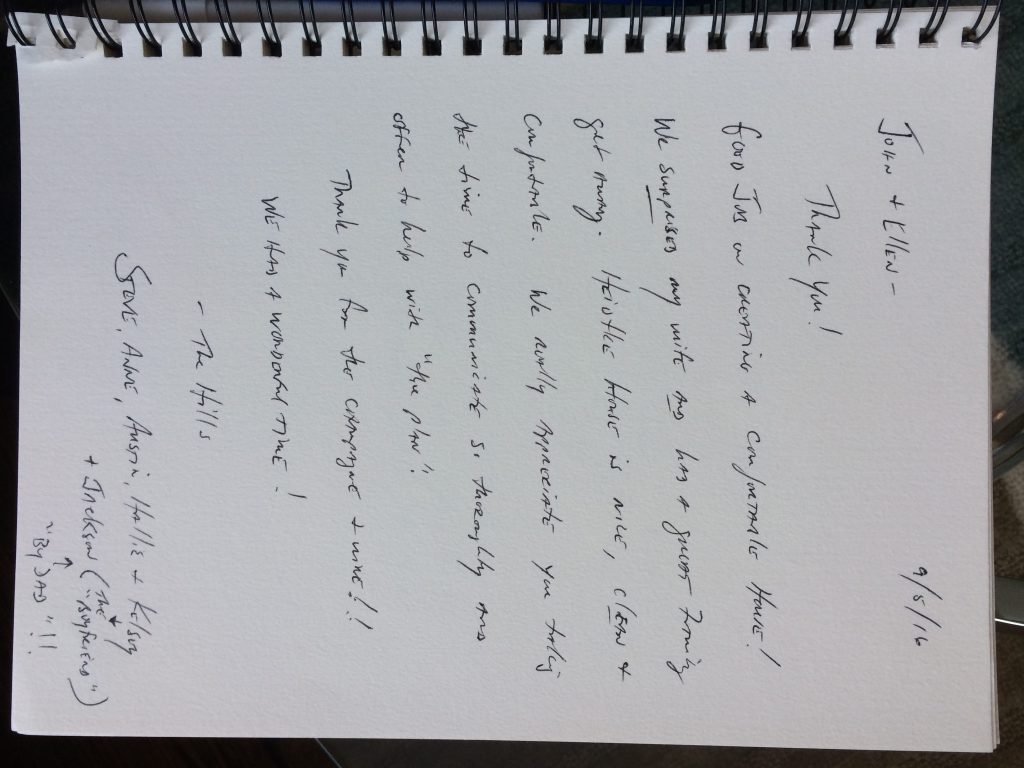 9/5/16
John + Ellen -
Thank you!
Good Job on creating a comfortable House!
We surprised my wife and had a great Family
get away. Heistlee House is nice, clean &
comfortable. We really appreciate you taking
the time to communicate so thoroughly and
often to help with "the plan".
Thank you for the campagne + wine!!
We Had a wonderful time!
- The Hills
Steve, Anne, Austin, Hallie + Kelsey
+ Jackson (the "Boyfriend")
"By DAD"!!